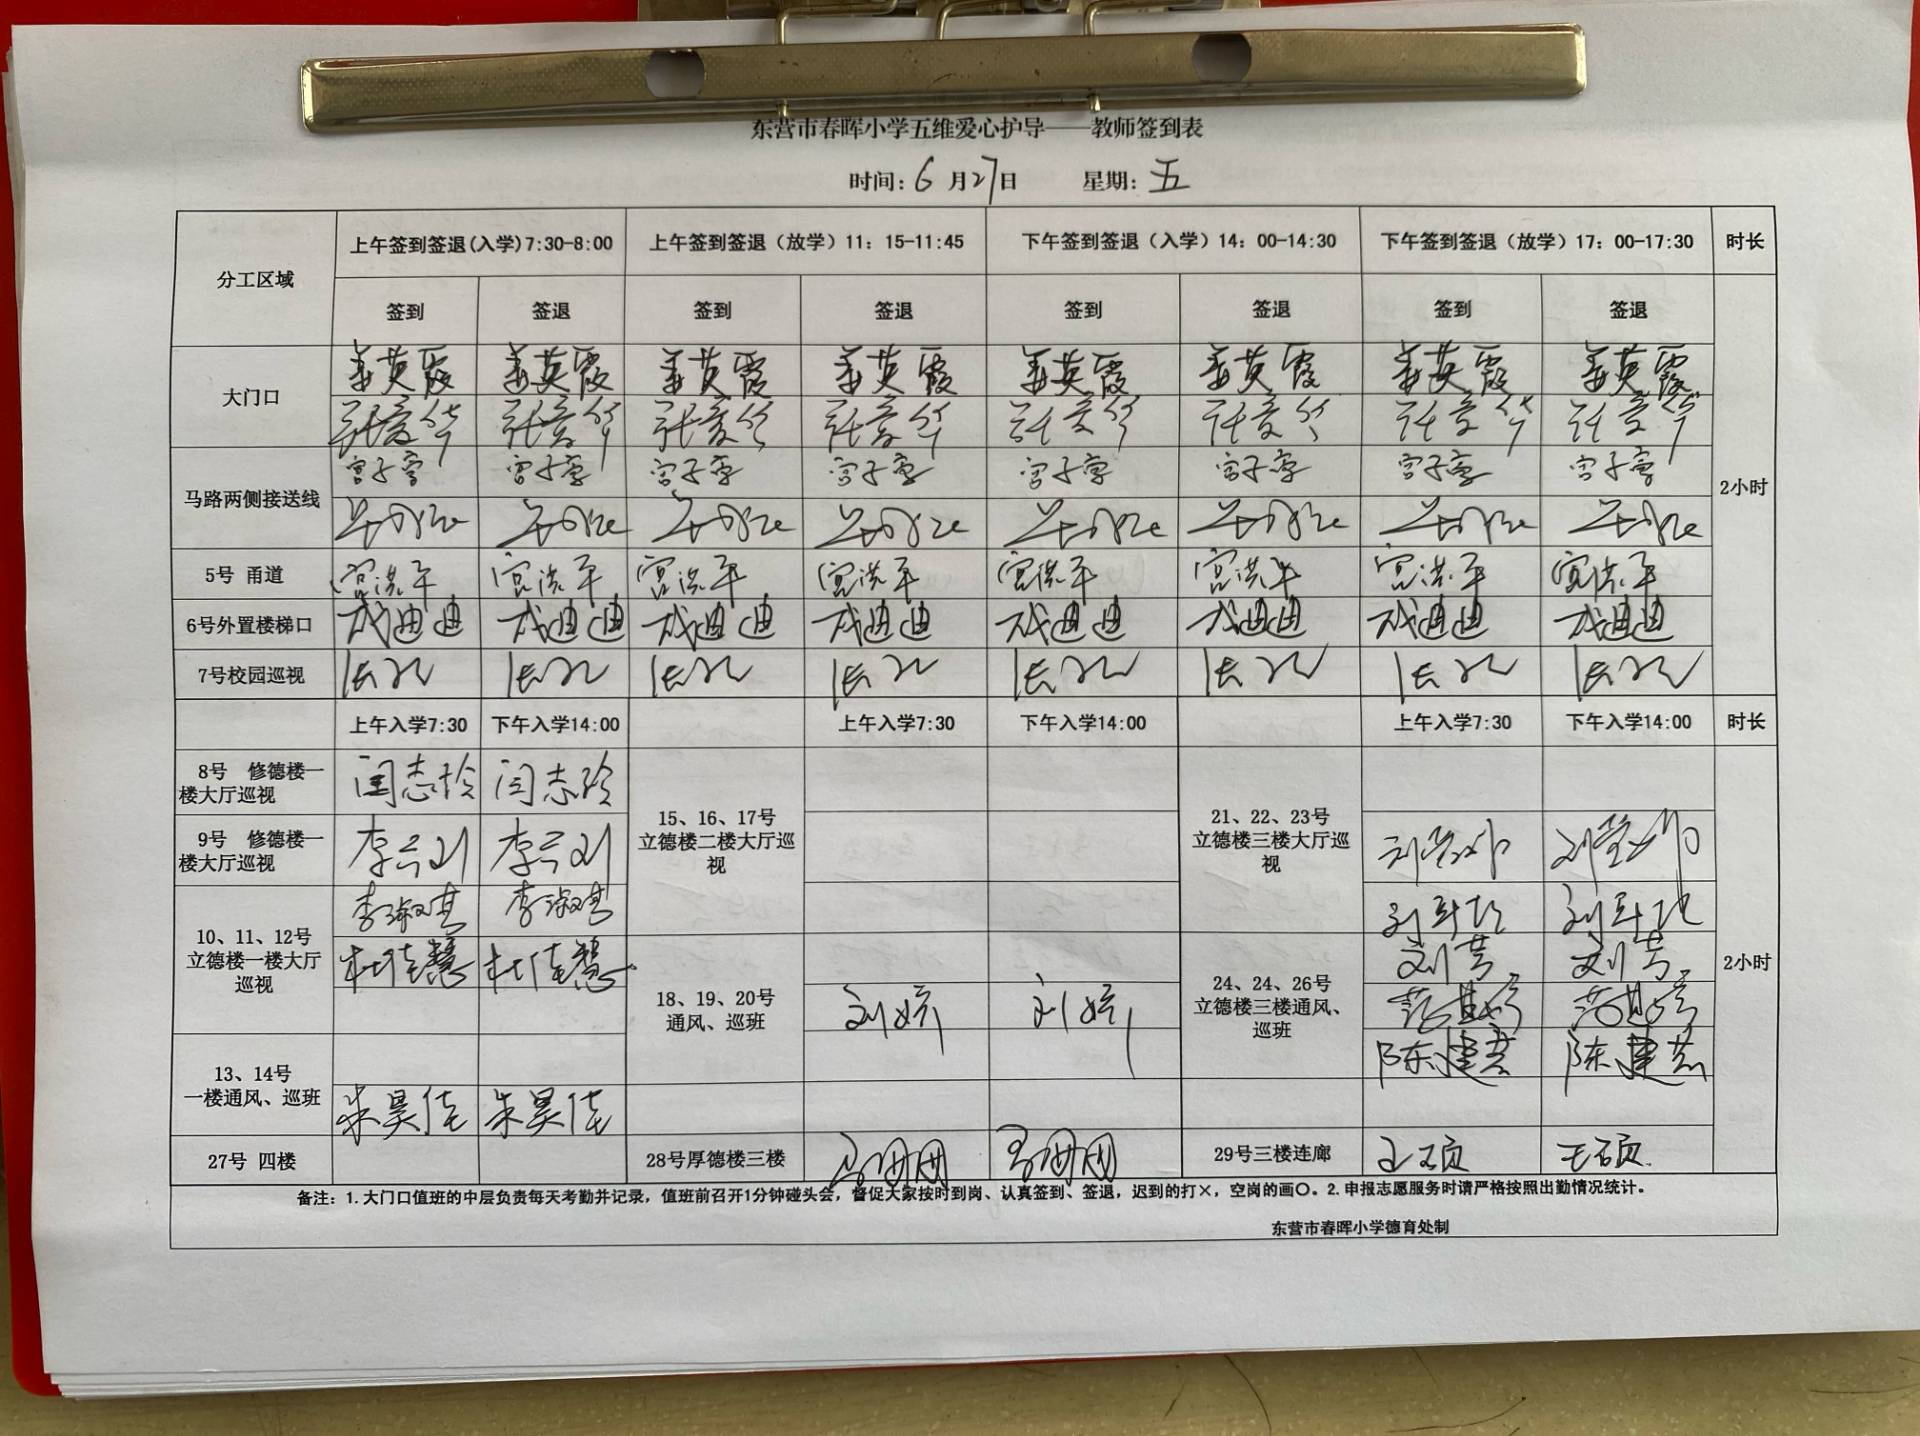 东营市春晖小学五维爱心护导——教师签到表
时间：6月27日 星期：五
分工区域 上午签到签退(入学)7:30-8:00 上午签到签退（放学）11：15-11:45 下午签到签退（入学）14：00-14:30 下午签到签退（放学）17：00-17:30 时长
签到 签退 签到 签退 签到 签退 签到 签退
大门口 姜英霞 姜英霞 姜英霞 姜英霞 姜英霞 姜英霞 姜英霞 姜英霞
马路两侧接送线 宫子雯 宫子雯 宫子雯 宫子雯 宫子雯 宫子雯 宫子雯 宫子雯 2小时
5号 甬道 宫洪平 宫洪平 宫洪平 宫洪平 宫洪平 宫洪平 宫洪平 宫洪平
6号外置楼梯口 成迪迪 成迪迪 成迪迪 成迪迪 成迪迪 成迪迪 成迪迪 成迪迪
7号校园巡视
上午入学7:30 下午入学14:00 上午入学7:30 下午入学14:00 上午入学7:30 下午入学14:00 时长
8号 修德楼一楼大厅巡视 闫志玲 闫志玲
15、16、17号
立德楼二楼大厅巡视
21、22、23号
立德楼三楼大厅巡视
9号 修德楼一楼大厅巡视
10、11、12号
立德楼一楼大厅巡视
李淑琪 李淑琪
杜佳慧 杜佳慧
18、19、20号
通风、巡班
刘婷 刘婷
24、24、26号
立德楼三楼通风、巡班
刘芳 刘芳
陈建芸 陈建芸
2小时
13、14号
一楼通风、巡班
朱昊佳 朱昊佳
27号 四楼 28号厚德楼三楼 29号三楼连廊 王硕 王硕
备注：1.大门口值班的中层负责每天考勤并记录，值班前召开1分钟碰头会，督促大家按时到岗、认真签到、签退，迟到的打×，空岗的画〇。2.申报志愿服务时请严格按照出勤情况统计。
东营市春晖小学德育处制